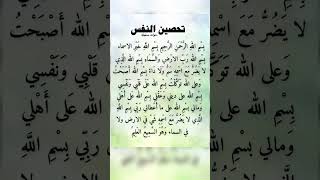 تحصين النفس
بِسْمِ اللهِ الرَّحْمَنِ الرَّحِيمِ بِسْمِ اللهِ خَيْرِ الاسماء
بِسْمِ اللهِ رَبِّ الارْضِ وَالسَّمَاءِ بِسْمِ اللهِ الَّذِي
لا يَضُرُّ مَعَ اسْمِهِ دَاءٌ بِسْمِ اللهِ أَصْبَحْتُ
وَعَلَى اللهِ تَوَكَّلْتُ بِسْمِ اللهِ عَلَى قَلْبِي وَنَفْسِي
بِسْمِ اللهِ عَلَى دِينِي وَعَقْلِي بِسْمِ اللهِ عَلَى أَهْلِي
وَمَالِي بِسْمِ اللهِ عَلَى مَا أَعْطَانِي رَبِّي بِسْمِ اللهِ
الَّذِي لا يَضُرُّ مَعَ اسْمِهِ شَيْءٌ فِي الارْضِ وَلا
فِي السماء وَهُوَ السَّمِيعُ العَلِيمُ